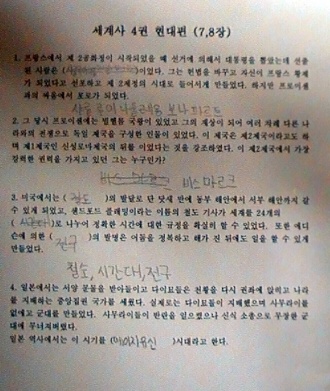 세계사 4권 현대편 (7,8장)
1. 프랑스에서 제 2공화정이 시작되었을 때 선거에 의해서 대통령을 뽑았는데 선출
된 사람은 ( )이었다. 그는 헌법을 바꾸고 자신이 프랑스 황제
가 되었다고 선포하고 제 2제정의 시대로 들어서게 만들었다. 하지만 프로이센
과의 싸움에서 포로가 되었다.
샤를 루이 나폴레옹 보나파르트
2. 그 당시 프로이센에는 빌헬름 국왕이 있었고 그의 재상이 되어 여러 차례 다른 나
라와의 전쟁으로 독일 제국을 구성한 인물이 있었다. 이 제국은 제2제국이라고도 하
며 제1제국인 신성로마제국의 뒤를 이었다는 것을 강조하였다. 이 제2제국에서 가장
강력한 권력을 가지고 있던 그는 누구인가?
비스마르크
3. 미국에서는 ( 철도 )의 발달로 단 닷새 만에 동부 해안에서 서부 해안까지 갈
수 있게 되었고, 샌드포드 플래밍이라는 이름의 철도 기사가 세계를 24개의
( 시간대 )로 나누어 정확한 시간에 대한 규정을 확실히 할 수 있었다. 또한 에디
슨에 의한 ( 전구 )의 발명은 어둠을 정복하고 해가 진 뒤에도 일을 할 수 있게
만들었다.
철도, 시간대, 전구
4. 일본에서는 서양 문물을 받아들이고 다이묘들은 천황을 다시 권좌에 앉히고 나라
를 지배하는 중앙집권 국가를 세웠다. 실제로는 다이묘들이 지배했으며 사무라이를
없애고 군대를 만들었다. 사무라이들이 반란을 일으켰으나 신식 소총으로 무장한 군
대에 무너져버렸다.
일본 역사에서는 이 시기를 ( 메이지유신 )시대라고 한다.